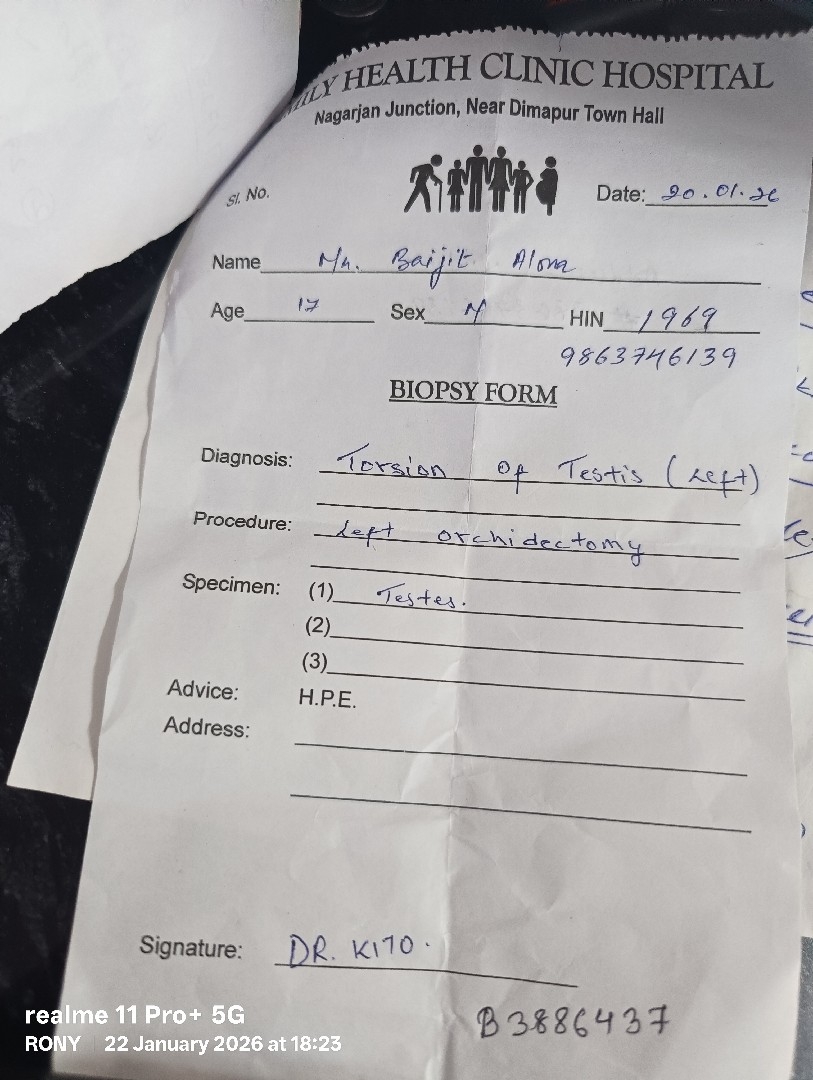 ILY HEALTH CLINIC HOSPITAL
Nagarjan Junction, Near Dimapur Town Hall
Sl. No.
Date: 20.01.26
Name Mr. Baijit Alom
Age 17 Sex M HIN 1969
9863746139
BIOPSY FORM
Diagnosis: Torsion of Testis (Left)
Procedure: Left orchidectomy
Specimen: (1) Testes.
(2)
(3)
Advice: H.P.E.
Address:
Signature: DR. KITO.
B3886437
realme 11 Pro+ 5G
RONY 22 January 2026 at 18:23